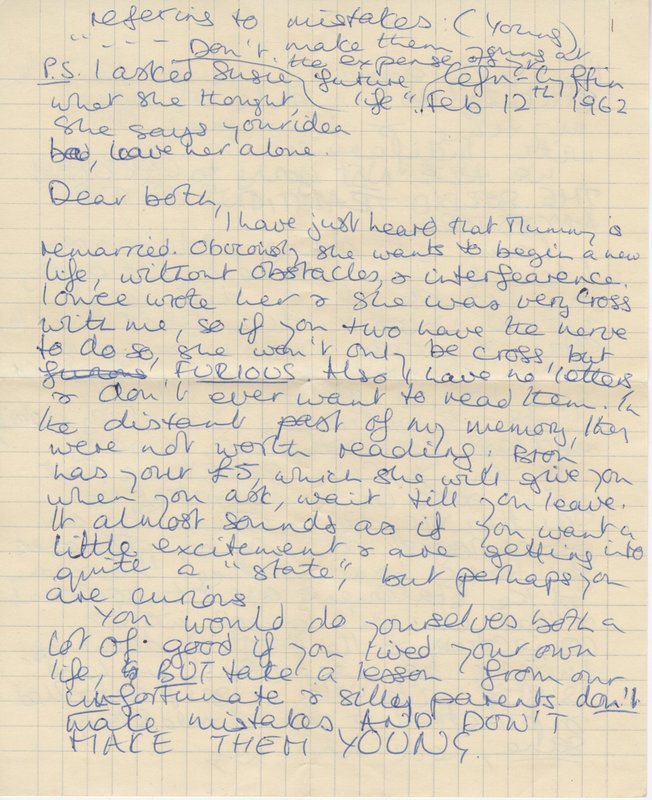 refering to mistakes: (Young)
"---- Don't make them young at
the expense of yr
P.S. I asked Susie future Cefn-Cyffin
what she thought, life". Feb 12th 1962
She says your idea
bad, leave her alone.
1
Dear both,
I have just heard that Mummy is
remarried. Obviously she wants to begin a new
life, without obstacles, & interfearence.
I once wrote her & she was very cross
with me, so if you two have the nerve
to do so, she won't only be cross, but
furious FURIOUS Also I have no letters
& don't ever want to read them. In
the distant past of my memory, they
were not worth reading. Bron
has your £5, which she will give you
when you ask, wait till you leave.
It almost sounds as if you want a
little excitement & are getting into
quite a "state", but perhaps you
are curious
You would do yourselves both a
lot of good if you lived your own
life, BUT take a lesson from our
unfortunate & silly parents don't
make mistakes AND DON'T
MAKE THEM YOUNG.